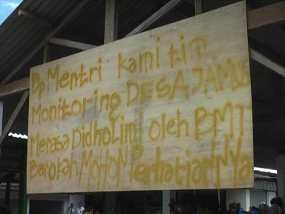 Bp Mentri kami tim
Monitoring DESA JAMUS
Merasa Didholimi oleh BMT
Barokah MOHON Perhatiannya